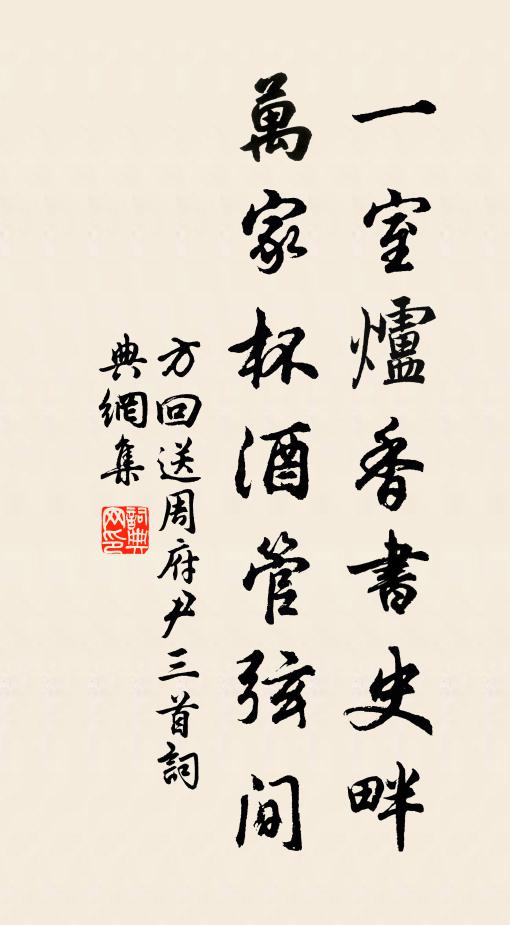 一室爐香書史畔
萬家杯酒管弦間
方回送周府尹三首詞
典網集
詞典網印